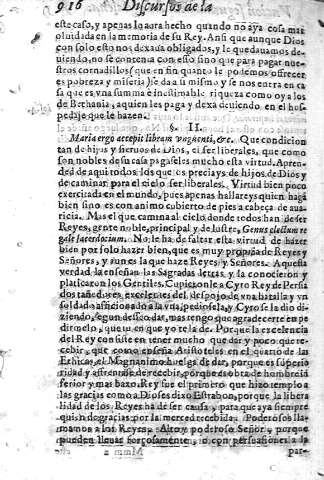 916 Discursos de la
este caso, y apenas lo aura hecho quando no aya cosa mas
oluidada en la memoria de su Rey. Ansi que aunque Dios
con solo esto nos dexaua obligados, y le quedauamos de-
uiendo, no se contenta con esso sino que para pagar nue-
stros cornadillos (que en fin quanto le podemos offrecer
es pobreza y miseria) se da a si mismo y se nos entra en ca
sa que es vna summa e inestimable riqueza como oy a los
de Bethania, a quien les paga y dexa deuiendo en el hos-
pedaje que le hazen.
§. II.
Maria ergo accepit libram vnguenti, &c. Que condicion
tan de hijas y sieruos de Dios, el ser liberales, que como
son nobles de su casa pagaseles mucho esta virtud. Apren-
ded de aqui todos los que os preciays de hijos de Dios y
de caminar para el cielo ser liberales. Virtud bien poco
exercitada en el mundo, pues apenas hallareys quien hagá
bien sino es con animo cubierto de pies a cabeça de aua-
ricia. Mas el que camina al cielo donde todos han de ser
Reyes, gente noble, principal y de lustre, Genus electum re
gale sacerdotium. No le ha de faltar esta virtud de hazer
bien por solo hazer bien, que es muy propria de Reyes y
Señores, y aun es la que haze Reyes y Señores. Aquesta
verdad la enseñan las Sagradas letras, y la conocieron y
platicaron los Gentiles. Cupieronle a Cyro Rey de Persia
dos tañedores excelentes del despojo de vna batalla y vn
soldado aficionado a la vna, pediosela, y Cyro se la dio di-
ziendo, segun desseo dar, mas tengo que agradecerte en pe
dirmelo, que tu en que yo te la de. Porque la excelencia
del Rey consiste en tener mucho que dar y poco que re-
cebir, que como enseña Aristoteles en el quarto de las
Ethicas, el Magnanimo huelga de dar, porque es superio
ridad y affrentase de recebir, porque es obra de hombre in
ferior y mas baxo. Rey fue el primero que hizo templo a
las gracias como a Dioses dixo Estrabon, porque la libera
lidad de los Reyes ha de ser causa, para que aya siempre
quien de gracias por la merced recebida. Poderosos lla-
mamos a los Reyes. Alto y poderoso Señor, y porque
pueden lleuar forçosamente, o con persuasiones a la
Mmm 2 par-